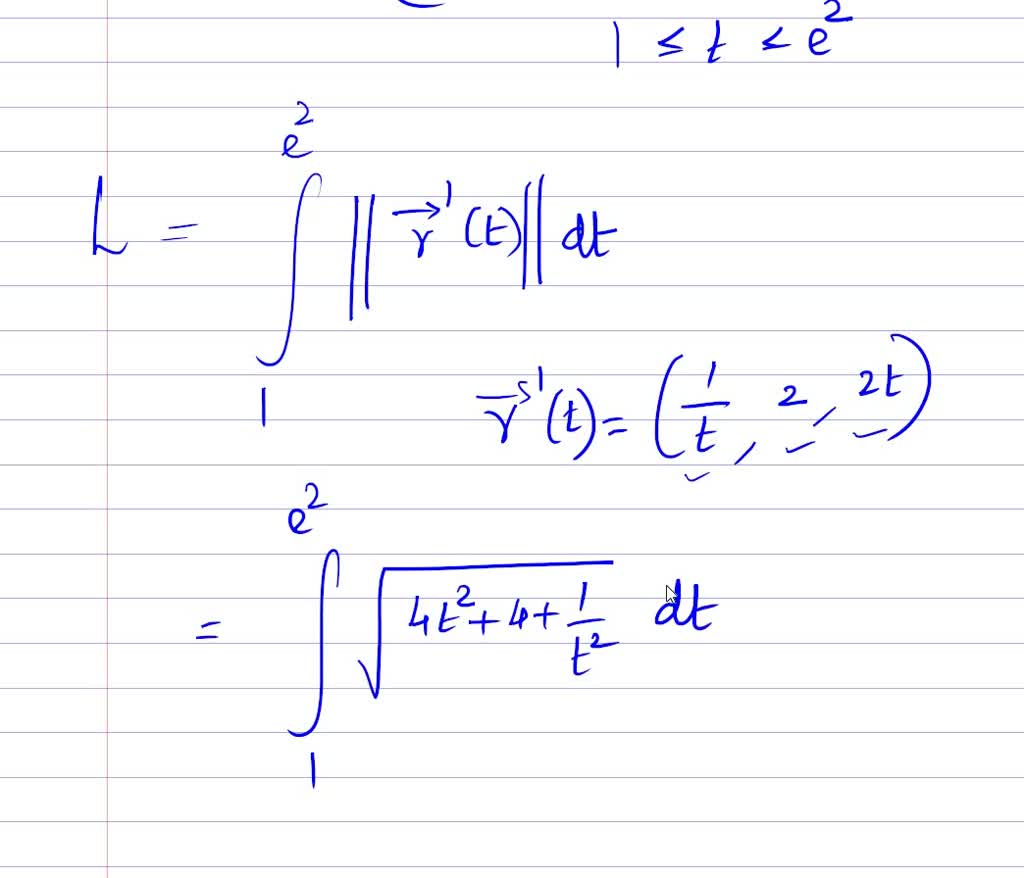 1 ≤ t ≤ e²
L = ∫₁^{e²} ‖r⃗'(t)‖ dt
r⃗'(t) = (1/t, 2, 2t)
= ∫₁^{e²} √(4t² + 4 + 1/t²) dt